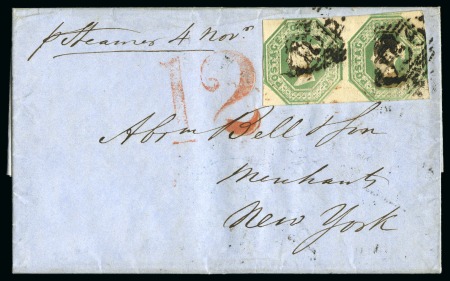 p Steamer 4 Novr
12
Abm Bell & Son
Merchants
New York